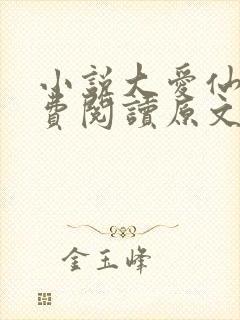 小説大愛仙
費閱讀原文
金玉峰